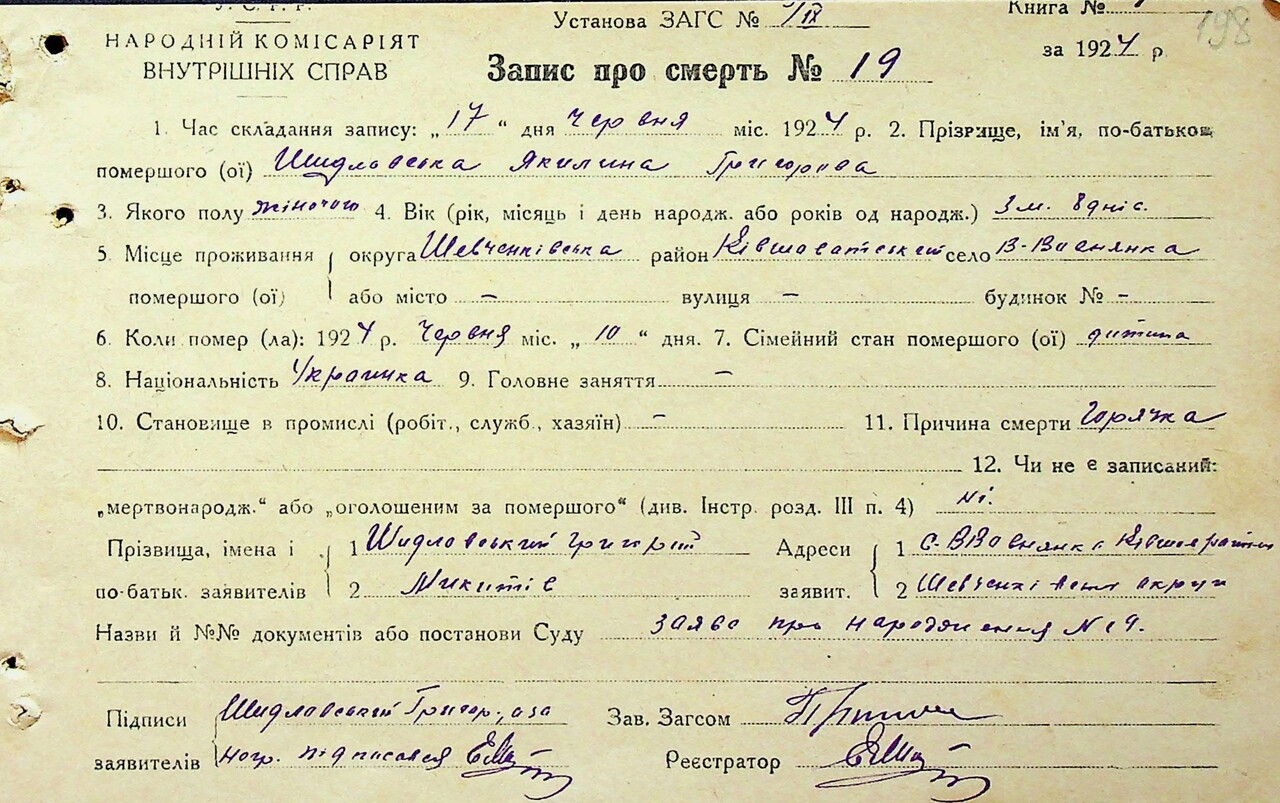 У.С.Р.Р.
Установа ЗАГС №
Книга №
198
НАРОДНІЙ КОМІСАРІЯТ
ВНУТРІШНІХ СПРАВ
за 1924 р
Запис про смерть № 19
1. Час складання запису: „17“ дня Червня міс. 1924 р. 2. Прізвище, ім'я, по-батькові
помершого (ої) Шидловська Якилина Григорова
3. Якого полу жіночого 4. Вік (рік, місяць і день народж. або років од народж.) 3 м. 8 днів.
5. Місце проживання округа Шевченківська район Ківшоватський село В-Вовнянка
помершого (ої) або місто – вулиця – будинок № –
6. Коли помер (ла): 1924 р. Червня міс. „10“ дня. 7. Сімейний стан помершого (ої) дитина
8. Національність Украинка 9. Головне заняття –
10. Становище в промислі (робіт., служб., хазяїн) – 11. Причина смерти Горячка
12. Чи не є записаний:
„мертвонародж.“ або „оголошеним за помершого“ (див. Інстр. розд. III п. 4) ні.
Прізвища, імена і 1 Шидловський Григорій Адреси 1 с. В Вовнянка
по-батьк. заявителів 2 Микитів заявит. 2 Шевченківськ округи
Назви й №№ документів або постанови Суду заява про народження N 19.
Підписи Шидловський Григор., а за Зав. Загсом
заявителів негр. підписався Реєстратор